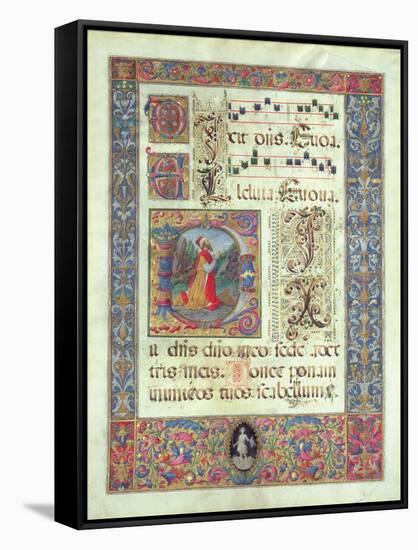 ixit dñs. Euoua.
lleluia. Euoua.
D I
X
it dñs dño meo sede a dex
tris meis. Donec ponam
inimicos tuos scabellum